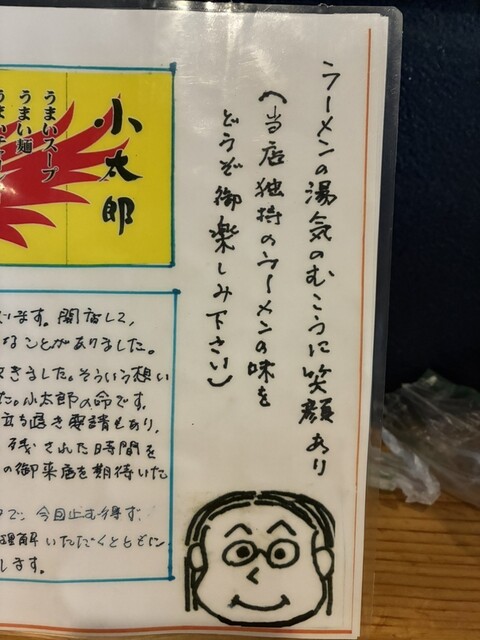 ラーメンの湯気のむこうに笑顔あり
(当店独持のラーメンの味を
どうぞ御楽しみ下さい)
小太郎
うまいスープ
うまい麺
います。開店して、
なことがありました。
きました。そういう想い
た。小太郎の命です。
立ち退き要請もあり、
残された時間を
の御来店を期待いた
で、今回止む得ず、
理解いただくとともに、
します。